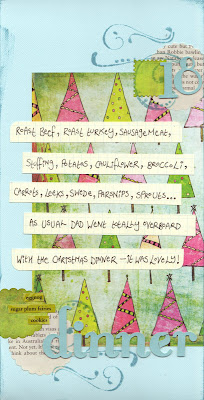 18
Roast Beef, Roast turkey, Sausagemeat,
Stuffing, Potatos, Cauliflower, Broccoli,
Carrots, Leeks, Swede, Parsnips, Sprouts...
As usual Dad went totally overboard
with the Christmas Dinner – it was lovely!
eggnog
sugar plum fairies
cookies
dinner